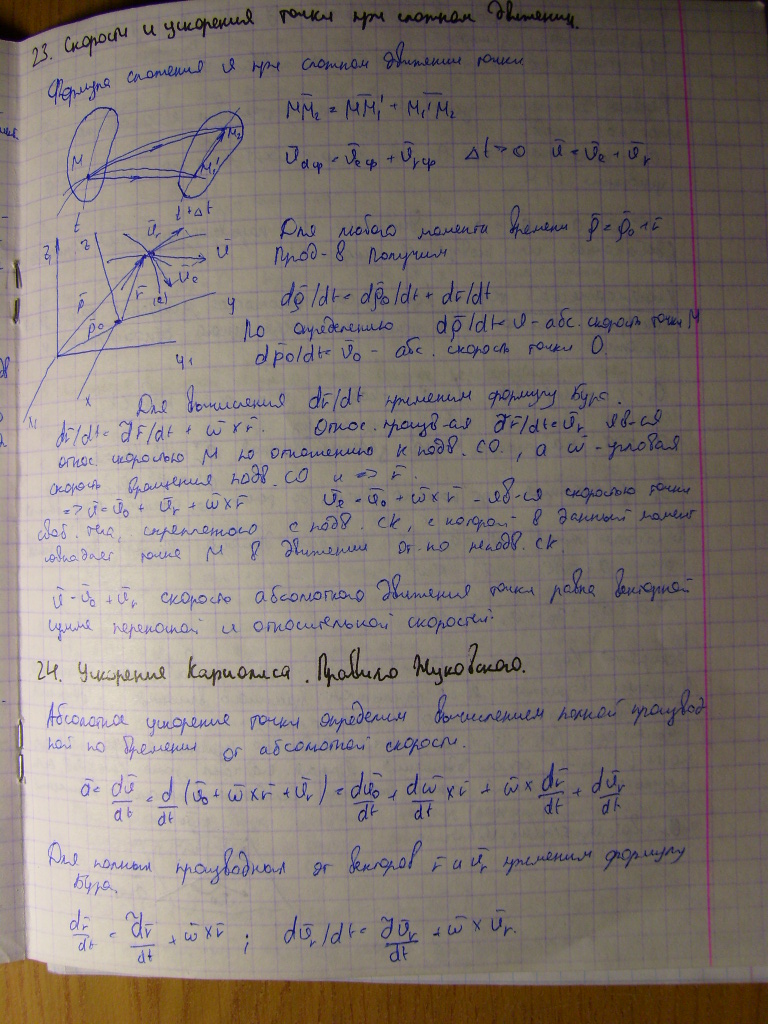 23. Скорости и ускорения точки при сложном движении.
Формула сложения v при сложном движении точки
M̄M₂ = M̄M₁' + M̄₁'M₂
M
M₂
M₁'
t
t+Δt
v̄ₐср = v̄ₑср + v̄ᵣср Δt→0 v̄ = v̄ₑ + v̄ᵣ
z₁ z v̄ᵣ v̄ v̄ₑ
ρ̄ r̄ (e) y
ρ̄₀ y₁
x
Для любого момента времени ρ̄ = ρ̄₀ + r̄
Прод-в получим
dρ̄/dt = dρ̄₀/dt + dr̄/dt
По определению dρ̄/dt = v̄ - абс. скорость точки M
dρ̄₀/dt = v̄₀ - абс. скорость точки O.
Для вычисления dr̄/dt применим формулу Бура.
dr̄/dt = d̃r̄/dt + ω̄ × r̄. Относ. произв-ая d̃r̄/dt = v̄ᵣ яв-ся
относ. скоростью M по отношению к подв. СО, а ω̄ - угловая
скорость вращения подв. СО и => r̄.
=> v̄ = v̄₀ + v̄ᵣ + ω̄ × r̄ v̄ₑ = v̄₀ + ω̄ × r̄ - яв-ся скоростью точки
своб. тела, скрепленного с подв. СК, с которой в данный момент
совпадает точка M в движении от-но неподв. СК
v̄ = v̄₀ + v̄ᵣ скорость абсолютного движения точки равна векторной
сумме переносной и относительной скоростей.
24. Ускорения Кариолиса. Правило Жуковского.
Абсолютное ускорение точки определим вычислением полной производ
ной по времени от абсолютной скорости.
ā = dv̄/dt = d/dt (v̄₀ + ω̄ × r̄ + v̄ᵣ) = dv̄₀/dt + dω̄/dt × r̄ + ω̄ × dr̄/dt + dv̄ᵣ/dt
Для полных производных от векторов r̄ и v̄ᵣ применим формулу
Бура.
dr̄/dt = d̃r̄/dt + ω̄ × r̄ ; dv̄ᵣ/dt = d̃v̄ᵣ/dt + ω̄ × v̄ᵣ.